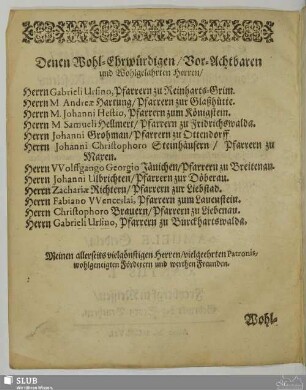 Denen Wohl-Ehrwürdigen / Vor-Achtbaren
und Wohlgelahrten Herren /
Herrn Gabrieli Ursino, Pfarrern zu Reinharts-Grim.
Herrn M. Andreæ Hartung / Pfarrern zur Glaßhütte.
Herrn M. Johanni Hestio, Pfarrern zum Königstein.
Herrn M. Samueli Hellmer / Pfarrern zu Fridrichswalda.
Herrn Johanni Großman / Pfarrern zu Ottendorff
Herrn Johanni Christophoro Steinhäusern / Pfarrern zu
Maxen.
Herrn VVolffgango Georgio Jänichen / Pfarrern zu Breitenau.
Herrn Johanni Ulbrichten / Pfarrern zur Döberau.
Herrn Zachariæ Richtern / Pfarrern zur Liebstad.
Herrn Fabiano VVenceslai, Pfarrern zum Lauenstein.
Herrn Christophoro Brauern / Pfarrern zu Liebenau.
Herrn Gabrieli Ursino, Pfarrern zu Burckhartswalda.
Meinen allerseits vielgünstigen Herren / vielgeehrten Patronis,
wohlgeneigten Fördern und werthen Freunden.
Wohl-
SLUB